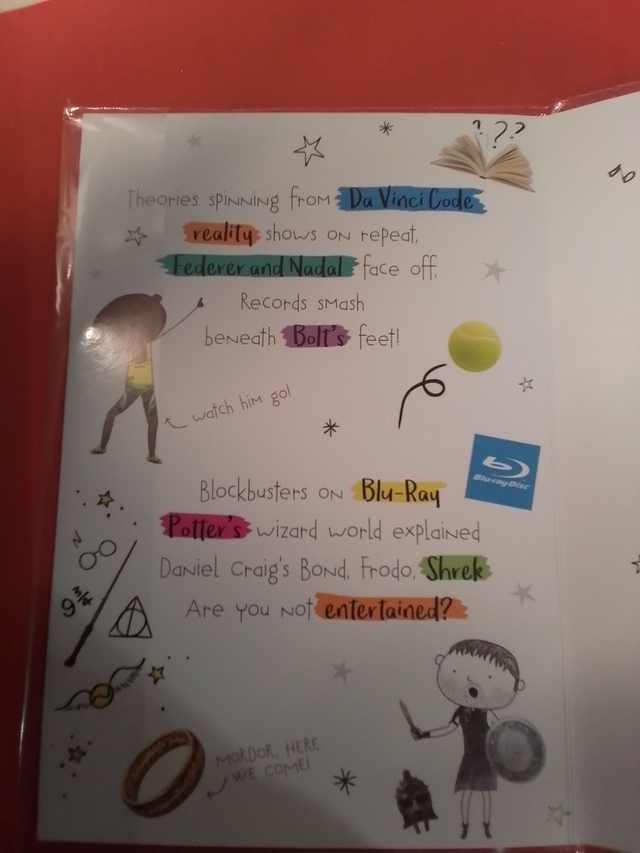 ???
Theories spinning from Da Vinci Code
reality shows on repeat,
Federer and Nadal face off.
Records smash
beneath Bolt's feet!
watch him go!
Blockbusters on Blu-Ray
Blu-ray Disc
Potter's wizard world explained
Daniel Craig's Bond, Frodo, Shrek
Are you not entertained?
9 3/4
MORDOR, HERE
WE COME!